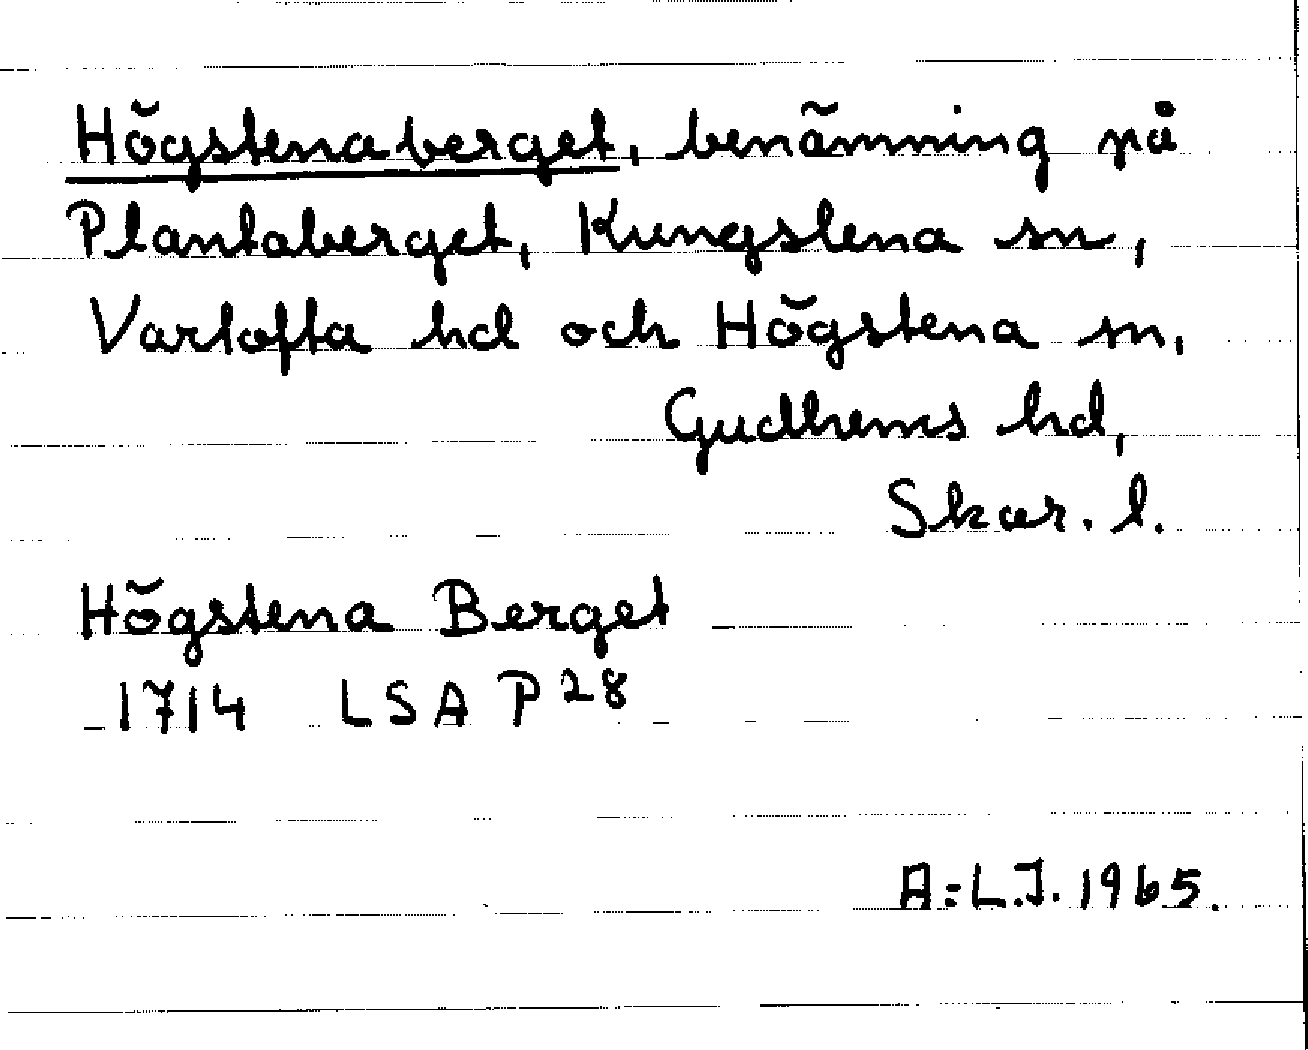 Högstenaberget, benämning på
Plantaberget, Kungslena sn,
Vartofta hd och Högstena sn,
Gudhems hd,
Skar. l.
Högstena Berget
1714 LSA P 28
A-L.J. 1965.